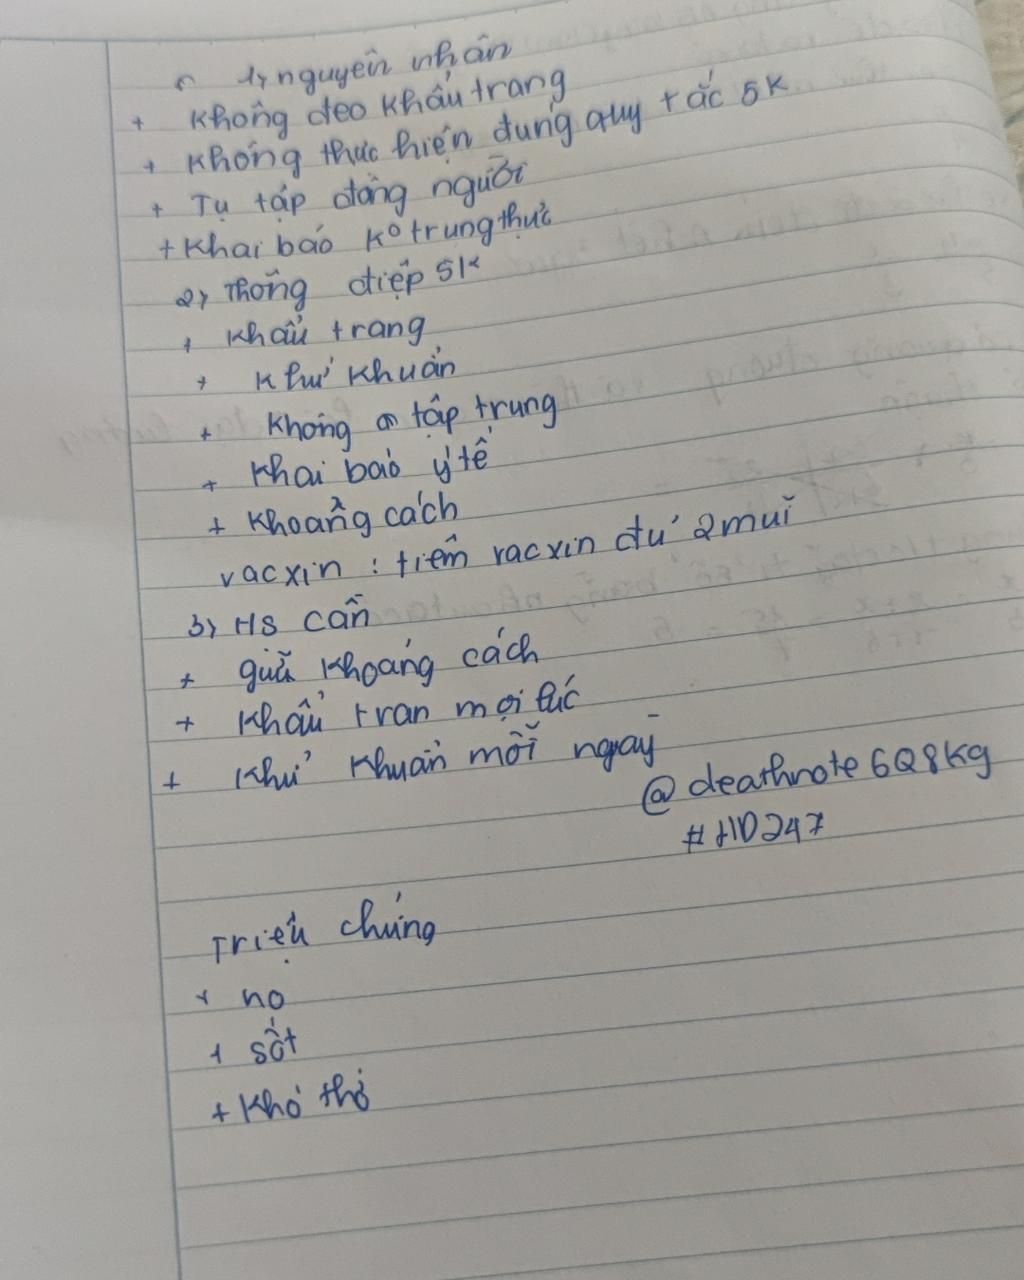 1, nguyên nhân
+ Không đeo khẩu trang
+ Không thực hiện đúng quy tắc 5K
+ Tụ tập đông người
+ Khai báo Ko trung thực
2, Thông điệp 5K
+ Khẩu trang
+ Khử khuẩn
+ Không tập trung
+ Khai báo y tế
+ Khoảng cách
vacxin : tiêm vacxin đủ 2 mũi
3, HS cần
+ giữ khoảng cách
+ Khẩu tran mọi lúc
+ Khử khuẩn mỗi ngày
@deathnote6Q8Kg
#HD247
Triệu chứng
+ ho
+ sốt
+ Khó thở